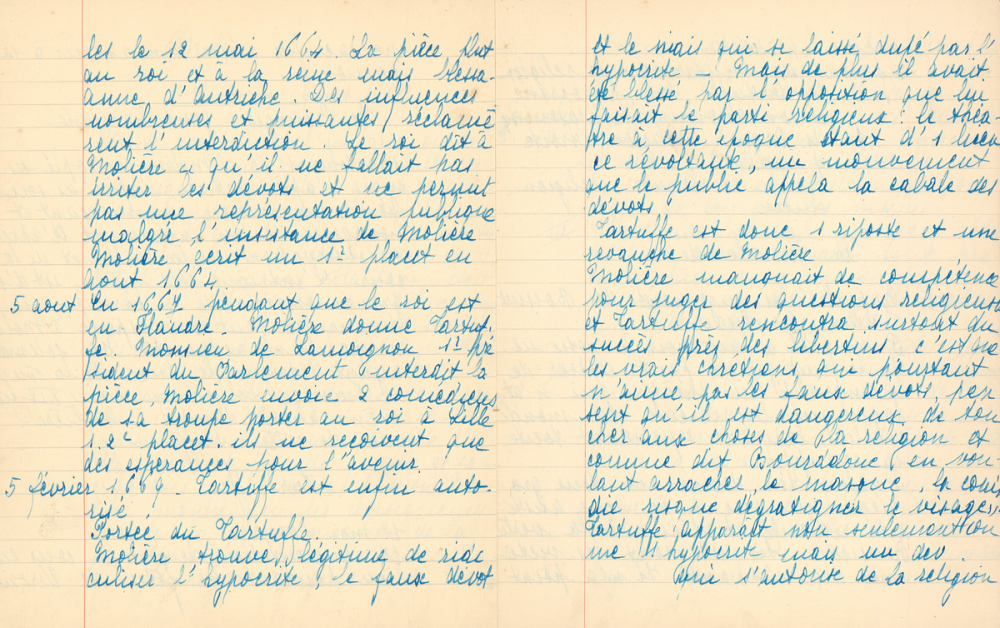 les le 12 mai 1664. La pièce plut
au roi et à la reine mais blessa
anne d'Autriche. Des influences
nombreuses et puissantes réclamè-
rent l'interdiction. Le roi dit à
Molière qu'il ne fallait pas
irriter les dévots et ne permit
pas une représentation publique
malgré l'insistance de Molière
Molière écrit un 1er placet en
aout 1664.
5 aout En 1667 pendant que le roi est
en Flandre. Molière donne Tartuf-
fe. Monsieu de Lamoignon 1er pré
sident du Parlement interdit la
pièce. Molière envoie 2 comédiens
de sa troupe porter au roi à Lille
1 2e placet. ils ne reçoivent que
des espérances pour l'avenir.
5 février 1669. Tartuffe est enfin auto-
risé.
Portée du Tartuffe.
Molière trouve légitime de ridi
culiser l'hypocrite, le faux dévot
et le niais qui se laisse dupé par l'
hypocrite – Mais de plus il avait
été blessé par l'opposition que lui
faisait le parti religieux : le théa-
tre à cette époque étant d'1 licen
ce révoltante, un mouvement
que le public appela la cabale des
dévots
Tartuffe est donc 1 riposte et une
revanche de Molière
Molière manquait de compétence
pour juger des questions religieuses
et Tartuffe rencontra surtout du
succès près des libertins c'est que
les vrais chrétiens qui pourtant
n'aime pas les faux dévots, pen
sent qu'il est dangereux de tou
cher aux choses de la religion et
comme dit Bourdaloue "en vou-
lant arracher le masque, la comé
die risque d'égratigner le visage".
Tartuffe apparaît non seulement com
me 1 hypocrite mais un dev.
qui s'autorise de la religion